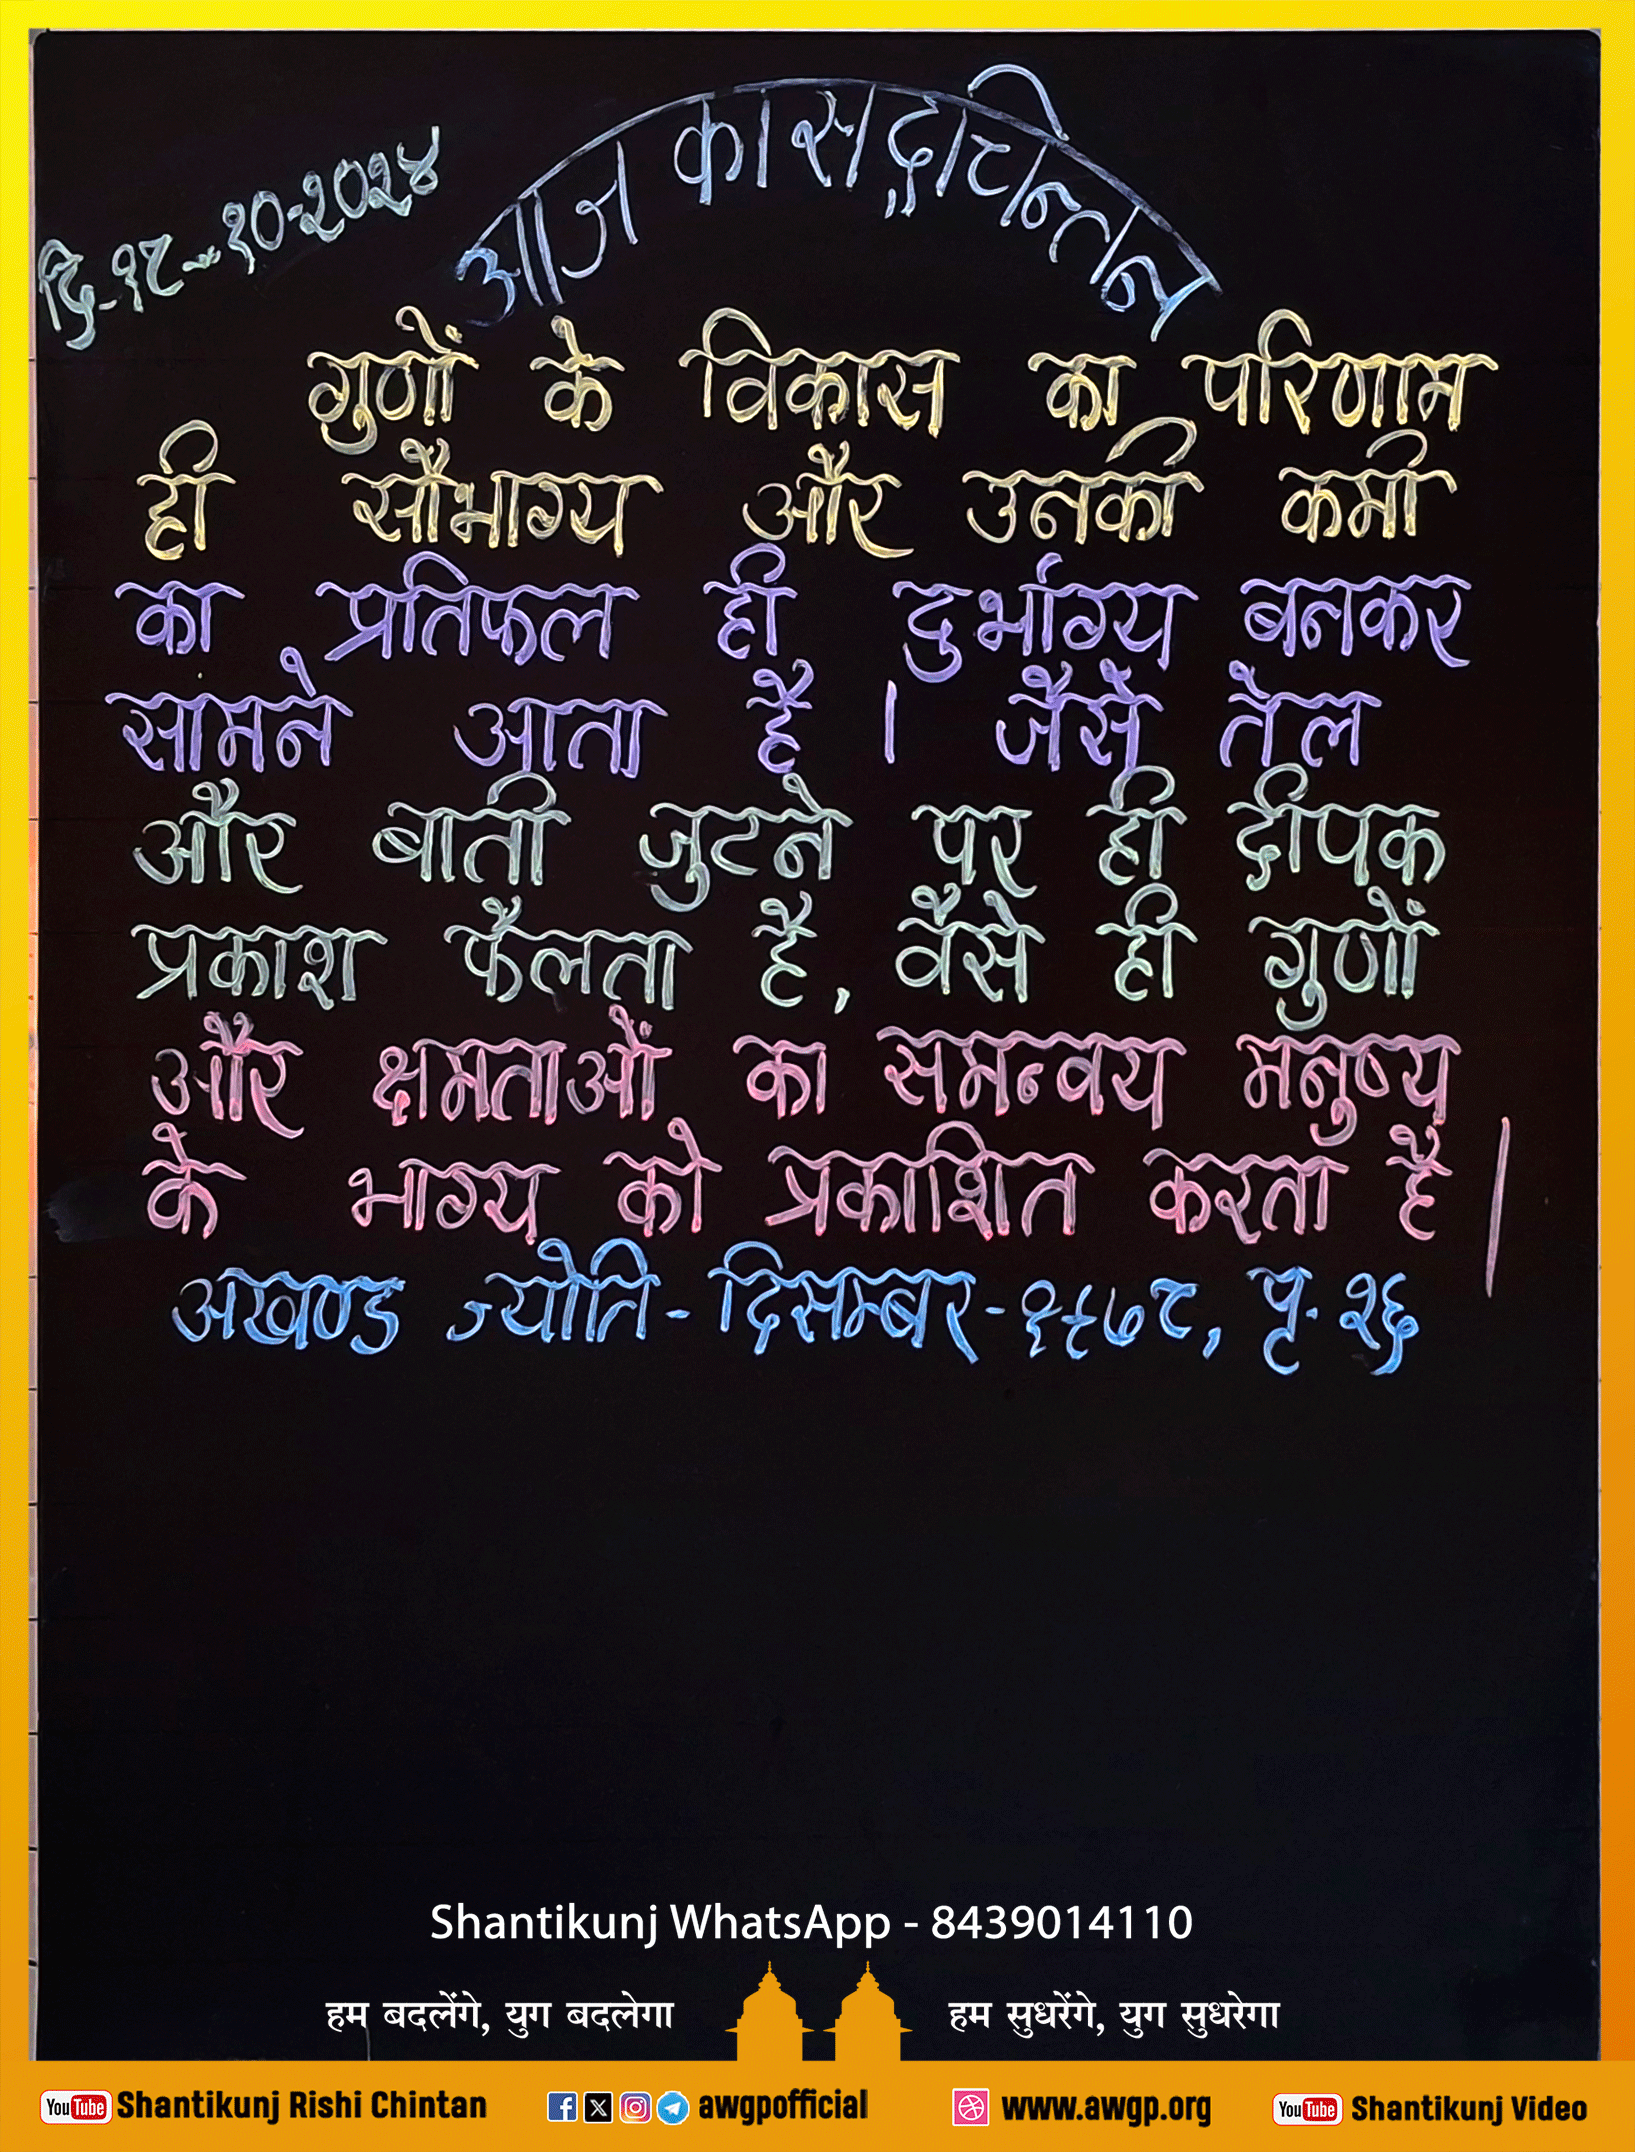 दि-१८-१०-२०२४
आज का सद्चिन्तन
गुणों के विकास का परिणाम
ही सौभाग्य और उनकी कमी
का प्रतिफल ही दुर्भाग्य बनकर
सामने आता है । जैसे तेल
और बाती जुटने पर ही दीपक
प्रकाश फैलता है, वैसे ही गुणों
और क्षमताओं का समन्वय मनुष्य
के भाग्य को प्रकाशित करता है |
अखण्ड ज्योति - दिसम्बर - १९७८, पृ. २६
Shantikunj WhatsApp - 8439014110
हम बदलेंगे, युग बदलेगा हम सुधरेंगे, युग सुधरेगा
YouTube Shantikunj Rishi Chintan awgpofficial www.awgp.org YouTube Shantikunj Video